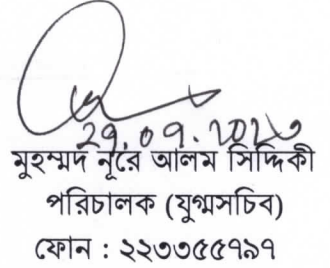 29.09.2020
মুহম্মদ নূরে আলম সিদ্দিকী
পরিচালক (যুগ্মসচিব)
ফোন : ২২৩৩৫৫৭৯৭